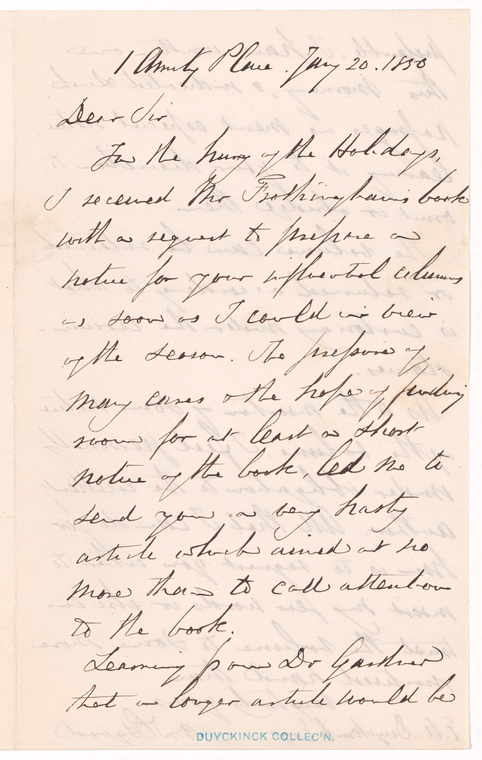 1 Amity Place. Jany 20. 1850
Dear Sir
In the hurry of the Holidays,
I received Mr Frothingham's book
with a request to prepare a
notice for your influential columns
as soon as I could in view
of the season. The pressure of
many cares & the hope of finding
room for at least a short
notice of the book, led me to
send you a very hasty
article which aimed at no
more than to call attention
to the book.
Learning from Dr Gardner
that a longer article would be
DUYCKINCK COLLEC'N.